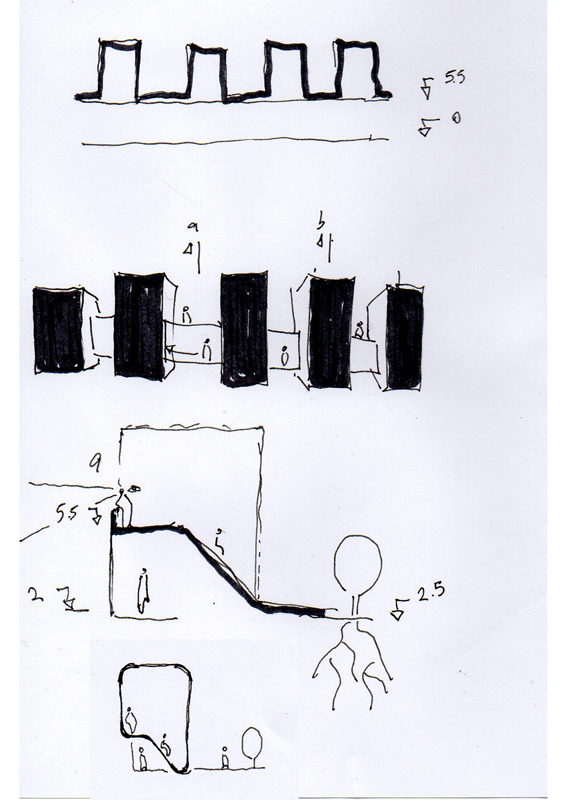 5.5
0
a b
a
5.5
2 2.5